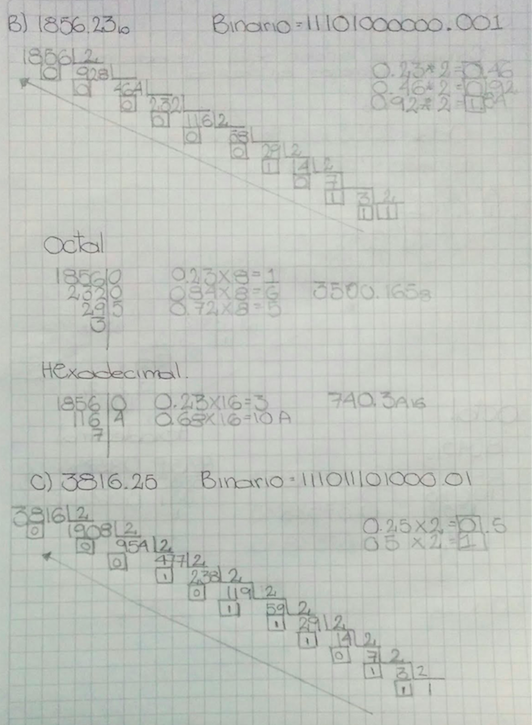 B) 1856.23₁₀ Binario=11101000000.001
1856|2
0 928|
0 464
0 232
0 116|2
0 58
0 29|2
1 14|2
0 7
1 3 2
1 1
0.23*2=0.46
0.46*2=0.92
0.92*2=1.84
Octal
1856|0
232|0
29|5
3
0.23x8=1
0.84x8=6
0.72x8=5
3500.165₈
Hexadecimal.
1856|0
116|4
7
0.23x16=3
0.68x16=10A
740.3A₁₆
C) 3816.25 Binario=111011101000.01
3816|2
0 1908|2
0 954|2
0 477|2
1 238|2
0 119|2
1 59|2
1 29|2
1 14|2
0 7|2
1 3|2
1 1
0.25x2=0.5
0.5 x2=1